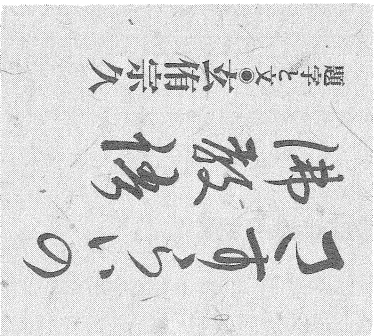 さすらいの
佛教語
題字と文●玄侑宗久